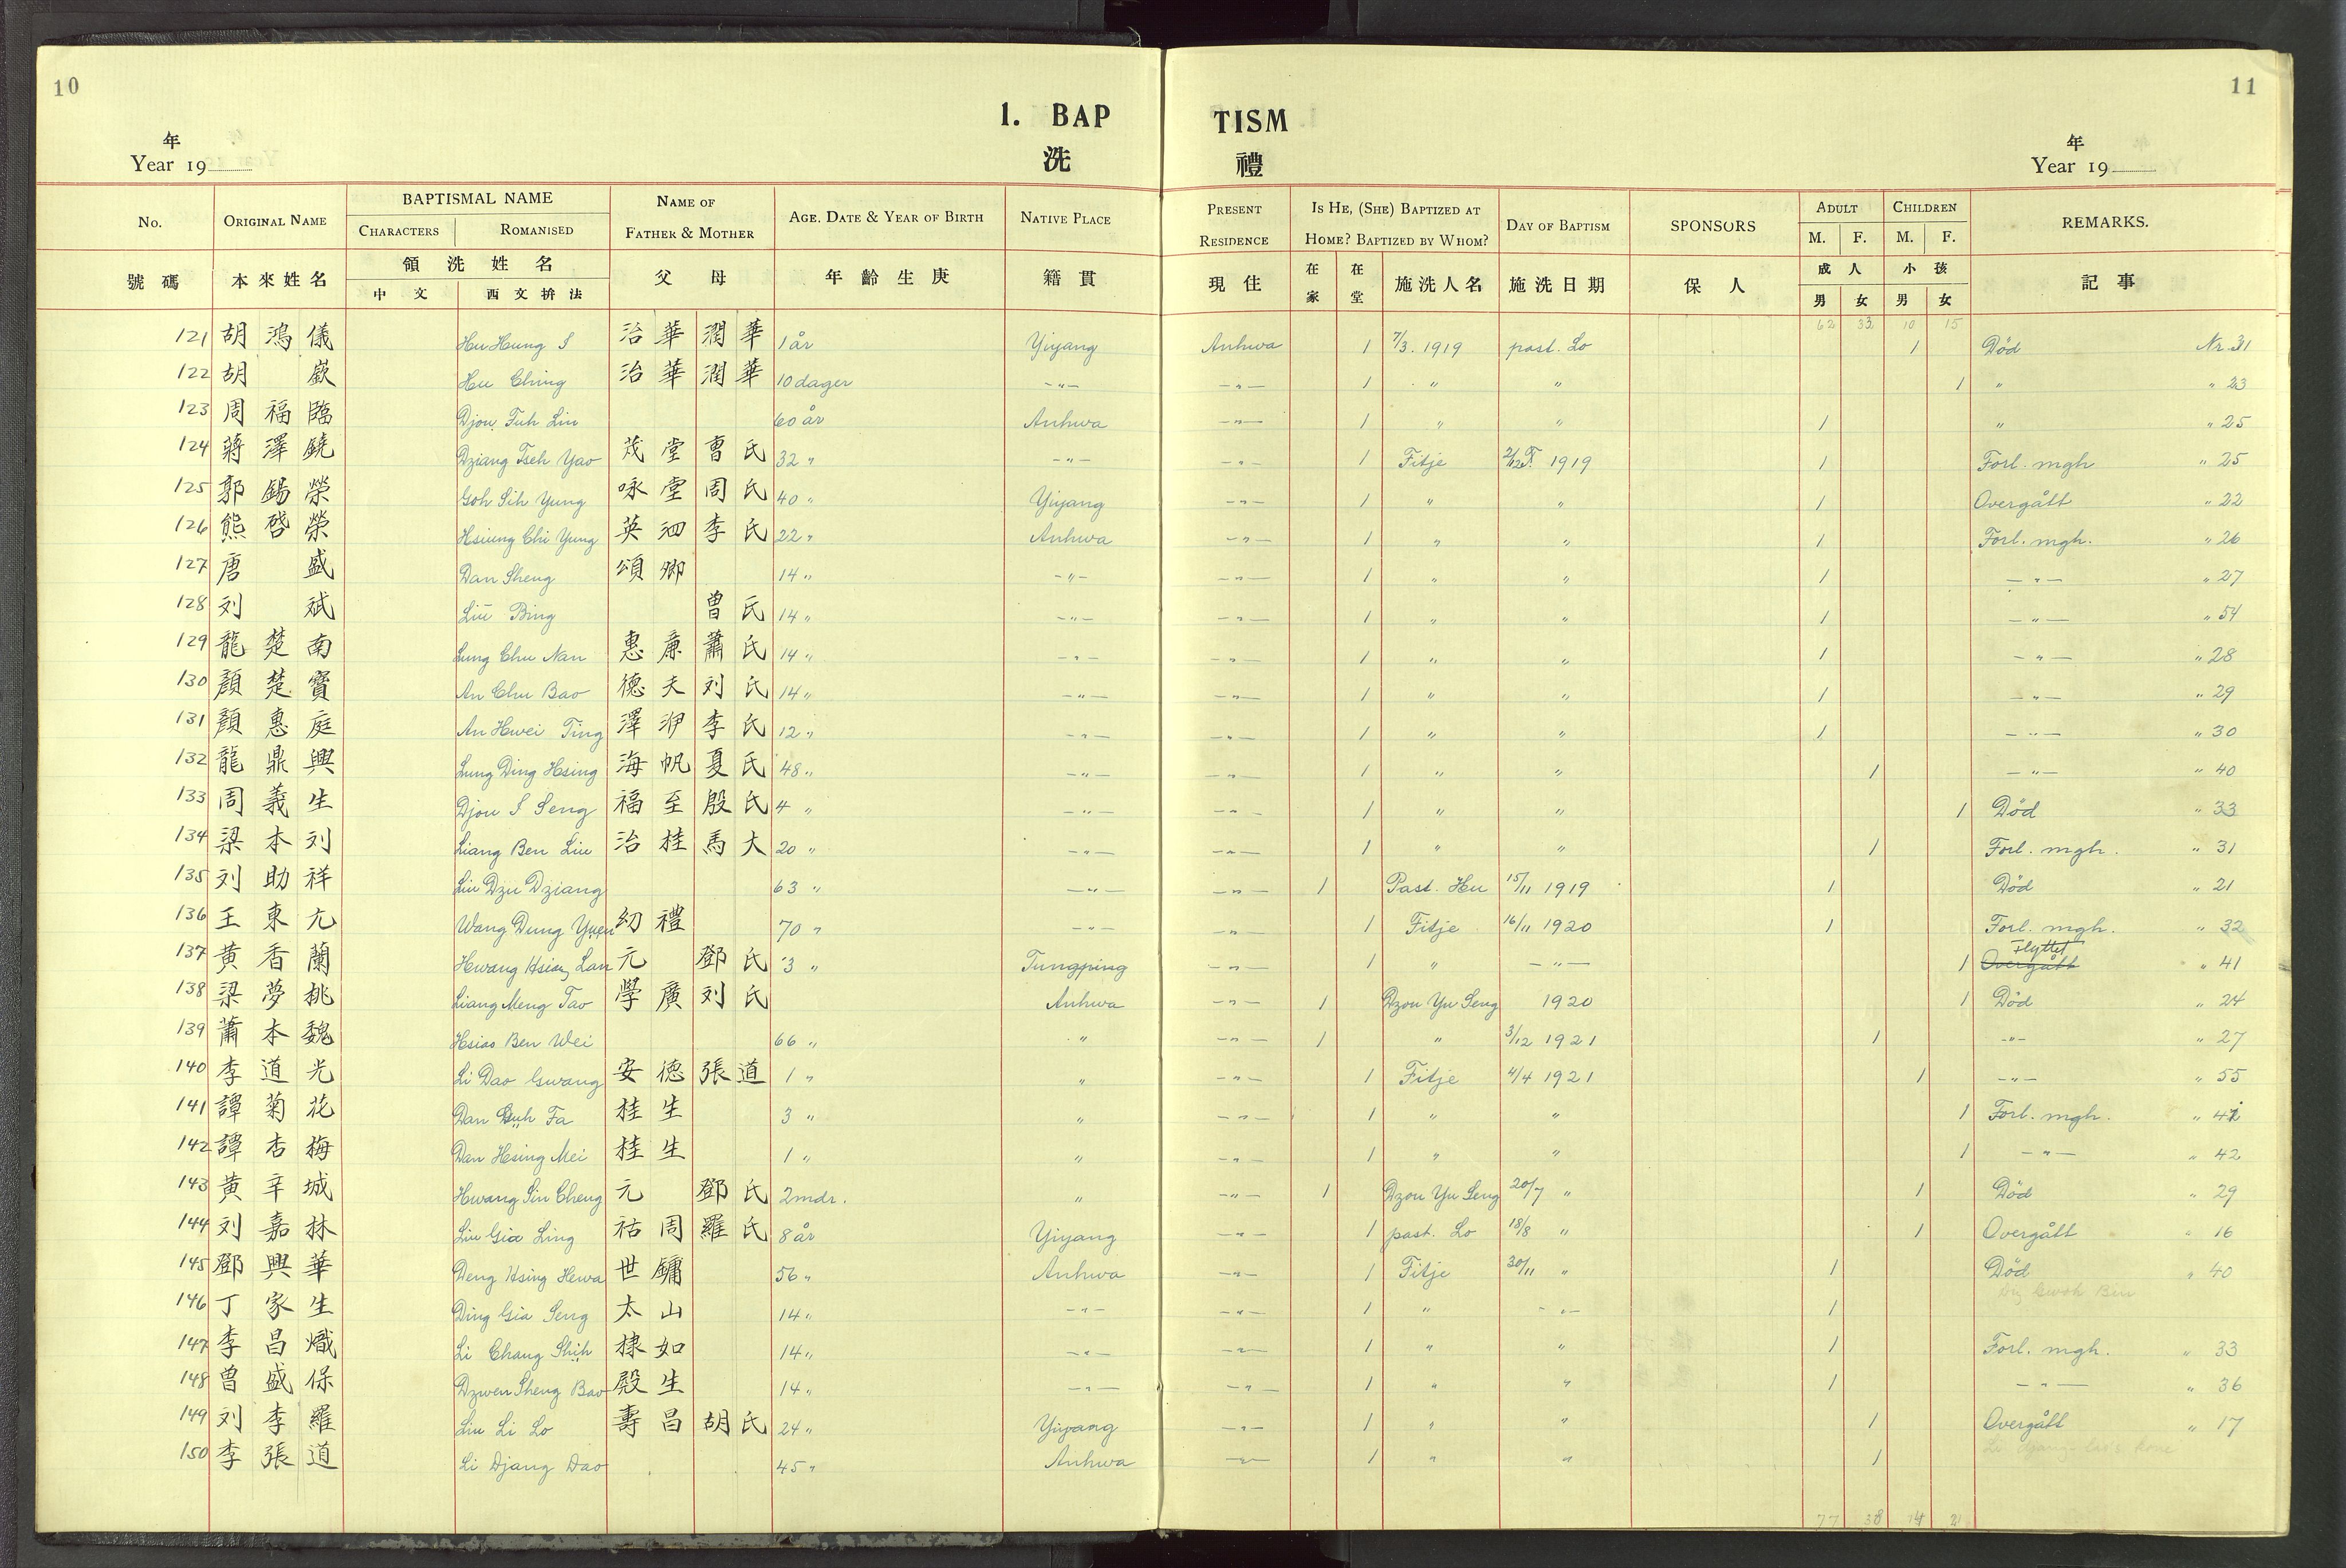 10
11
1. BAP TISM
洗 禮
年
Year 19
年
Year 19
No. ORIGINAL NAME BAPTISMAL NAME NAME OF FATHER & MOTHER AGE. DATE & YEAR OF BIRTH NATIVE PLACE PRESENT RESIDENCE IS HE, (SHE) BAPTIZED AT HOME? BAPTIZED BY WHOM? DAY OF BAPTISM SPONSORS ADULT CHILDREN REMARKS.
CHARACTERS ROMANISED M. F. M. F.
號碼 本來姓名 領洗姓名 父母 年齡生庚 籍貫 現住 在家 在堂 施洗人名 施洗日期 保人 成人 小孩 記事
中文 西文拚法 男 女 男 女
62 33 10 15
121 胡鴻儀 Hu Hung I 治華 潤華 1 år Yiyang Anhwa 1 7/3. 1919 past. Lo 1 Död Nr. 31
122 胡 Hu Ching 治華 潤華 10 dager -"- -"- 1 " " 1 " " 23
123 周福臨 Djou Fuh Lin 60 år Anhwa -"- 1 " " 1 " " 25
124 蔣澤鐃 Dziang Tseh Yao 茂堂 曹氏 32 " -"- -"- 1 Fitje 1919 1 Forl. mgh " 25
125 郭錫榮 Goh Sih Yung 咏堂 周氏 40 " Yiyang -"- 1 " " 1 Overgått " 22
126 熊啓榮 Hsiung Chi Yung 英泗 李氏 22 " Anhwa -"- 1 " " 1 Forl. mgh. " 26
127 唐盛 Dan Sheng 頌卿 14 " -"- -"- 1 " " 1 -"- " 27
128 刘斌 Liu Bing 曾氏 14 " -"- -"- 1 " " 1 -"- " 54
129 龍楚南 Lung Chu Nan 惠廉 蕭氏 14 " -"- -"- 1 " " 1 -"- " 28
130 顏楚寶 An Chu Bao 德夫 刘氏 14 " -"- -"- 1 " " 1 -"- " 29
131 顏惠庭 An Hwei Ting 澤 李氏 12 " -"- -"- 1 " " 1 -"- " 30
132 龍鼎興 Lung Ding Hsing 海帆 夏氏 48 " -"- -"- 1 " " 1 -"- " 40
133 周義生 Djou I Seng 福至 殷氏 4 " -"- -"- 1 " " 1 Död " 33
134 梁本刘 Liang Ben Liu 治桂 馬大 20 " -"- -"- 1 " " 1 Forl. mgh. " 31
135 刘助祥 Liu Dzu Dziang 63 " -"- -"- 1 Past. Hu 15/11 1919 1 Död " 21
136 王東亢 Wang Dung Yuen 幼禮 70 " -"- -"- 1 Fitje 16/11 1920 1 Forl. mgh. " 32
137 黃香蘭 Hwang Hsiang Lan 元 鄧氏 3 " Tungping -"- 1 " -"- 1 Overgått Flyttet " 41
138 梁夢桃 Liang Meng Tao 學廣 刘氏 Anhwa -"- 1 Dzou Yu Seng 1920 1 Död " 24
139 蕭本魏 Hsiao Ben Wei 66 " " -"- 1 " 3/12 1921 1 -"- " 27
140 李道光 Li Dao Gwang 安德 張道 1 " " -"- 1 Fitje 4/4 1921 1 -"- " 55
141 譚菊花 Dan Fa 桂生 3 " " -"- 1 " " 1 Forl. mgh. "
142 譚杏梅 Dan Hsing Mei 桂生 1 " " -"- 1 " " 1 -"- " 42
143 黃辛城 Hwang Sin Cheng 元 鄧氏 2 mdr. " -"- 1 Dzou Yu Seng 20/7 " 1 Död " 29
144 刘嘉林 Liu Gia Ling 祜周 羅氏 8 år Yiyang -"- 1 past. Lo 18/8 " 1 Overgått " 16
145 鄧興華 Deng Hsing Hwa 世鏞 56 " Anhwa -"- 1 Fitje 30/11 " 1 Död " 40
146 丁家生 Ding Gia Seng 太山 14 " -"- -"- 1 " -"- 1
147 李昌熾 Li Chang Shih 棣如 14 " -"- -"- 1 " " 1 Forl. mgh. " 33
148 曾盛保 Dzwen Sheng Bao 殿生 14 " -"- -"- 1 " " 1 -"- " 36
149 刘李羅 Liu Li Lo 壽昌 胡氏 24 " Yiyang -"- 1 " " 1 Overgått " 17
150 李張道 Li Djang Dao 45 " Anhwa -"- 1 " " 1
77 38 14 21